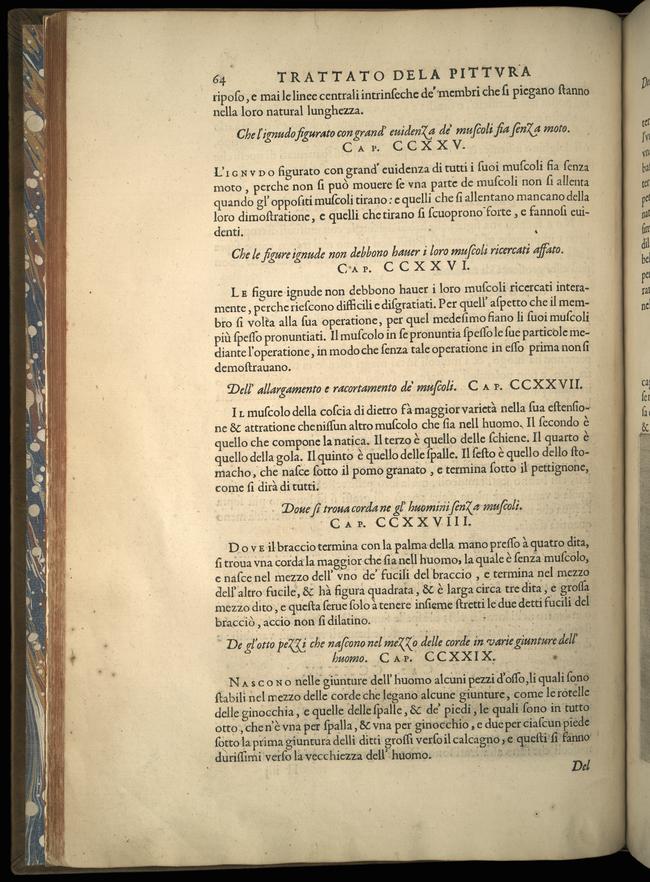 64 TRATTATO DELA PITTVRA
riposo, e mai le linee centrali intrinseche de' membri che si piegano stanno
nella loro natural lunghezza.
Che l'ignudo figurato con grand' euidenza de' muscoli sia senza moto.
CAP. CCXXV.
L'IGNVDO figurato con grand' euidenza di tutti i suoi muscoli sia senza
moto, perche non si può mouere se vna parte de muscoli non si allenta
quando gl' oppositi muscoli tirano: e quelli che si allentano mancano della
loro dimostratione, e quelli che tirano si scuoprono forte, e fannosi eui-
denti.
Che le figure ignude non debbono hauer i loro muscoli ricercati affato.
CAP. CCXXVI.
LE figure ignude non debbono hauer i loro muscoli ricercati intera-
mente, perche riescono difficili e disgratiati. Per quell' aspetto che il mem-
bro si volta alla sua operatione, per quel medesimo siano li suoi muscoli
più spesso pronuntiati. Il muscolo in se pronuntia spesso le sue particole me-
diante l'operatione, in modo che senza tale operatione in esso prima non si
demostrauano.
Dell' allargamento e racortamento de' muscoli. CAP. CCXXVII.
IL muscolo della coscia di dietro fà maggior varietà nella sua estensio-
ne & attratione che nissun altro muscolo che sia nell huomo. Il secondo è
quello che compone la natica. Il terzo è quello delle schiene. Il quarto è
quello della gola. Il quinto è quello delle spalle. Il sesto è quello dello sto-
macho, che nasce sotto il pomo granato, e termina sotto il pettignone,
come si dirà di tutti.
Doue si troua corda ne gl' huomini senza muscoli.
CAP. CCXXVIII.
DOVE il braccio termina con la palma della mano presso à quatro dita,
si troua vna corda la maggior che sia nell huomo, la quale è senza muscolo,
e nasce nel mezzo dell' vno de' fucili del braccio, e termina nel mezzo
dell'altro fucile, & hà figura quadrata, & è larga circa tre dita, e grossa
mezzo dito, e questa serue solo à tenere insieme stretti le due detti fucili del
bracciò, accio non si dilatino.
De gl'otto pezzi che nascono nel mezzo delle corde in varie giunture dell'
huomo. CAP. CCXXIX.
NASCONO nelle giunture dell' huomo alcuni pezzi d'osso, li quali sono
stabili nel mezzo delle corde che legano alcune giunture, come le rotelle
delle ginocchia, e quelle delle spalle, & de' piedi, le quali sono in tutto
otto, che n'è vna per spalla, & vna per ginocchio, e due per ciascun piede
sotto la prima giuntura delli ditti grossi verso il calcagno, e questi si fanno
durissimi verso la vecchiezza dell' huomo.
Del